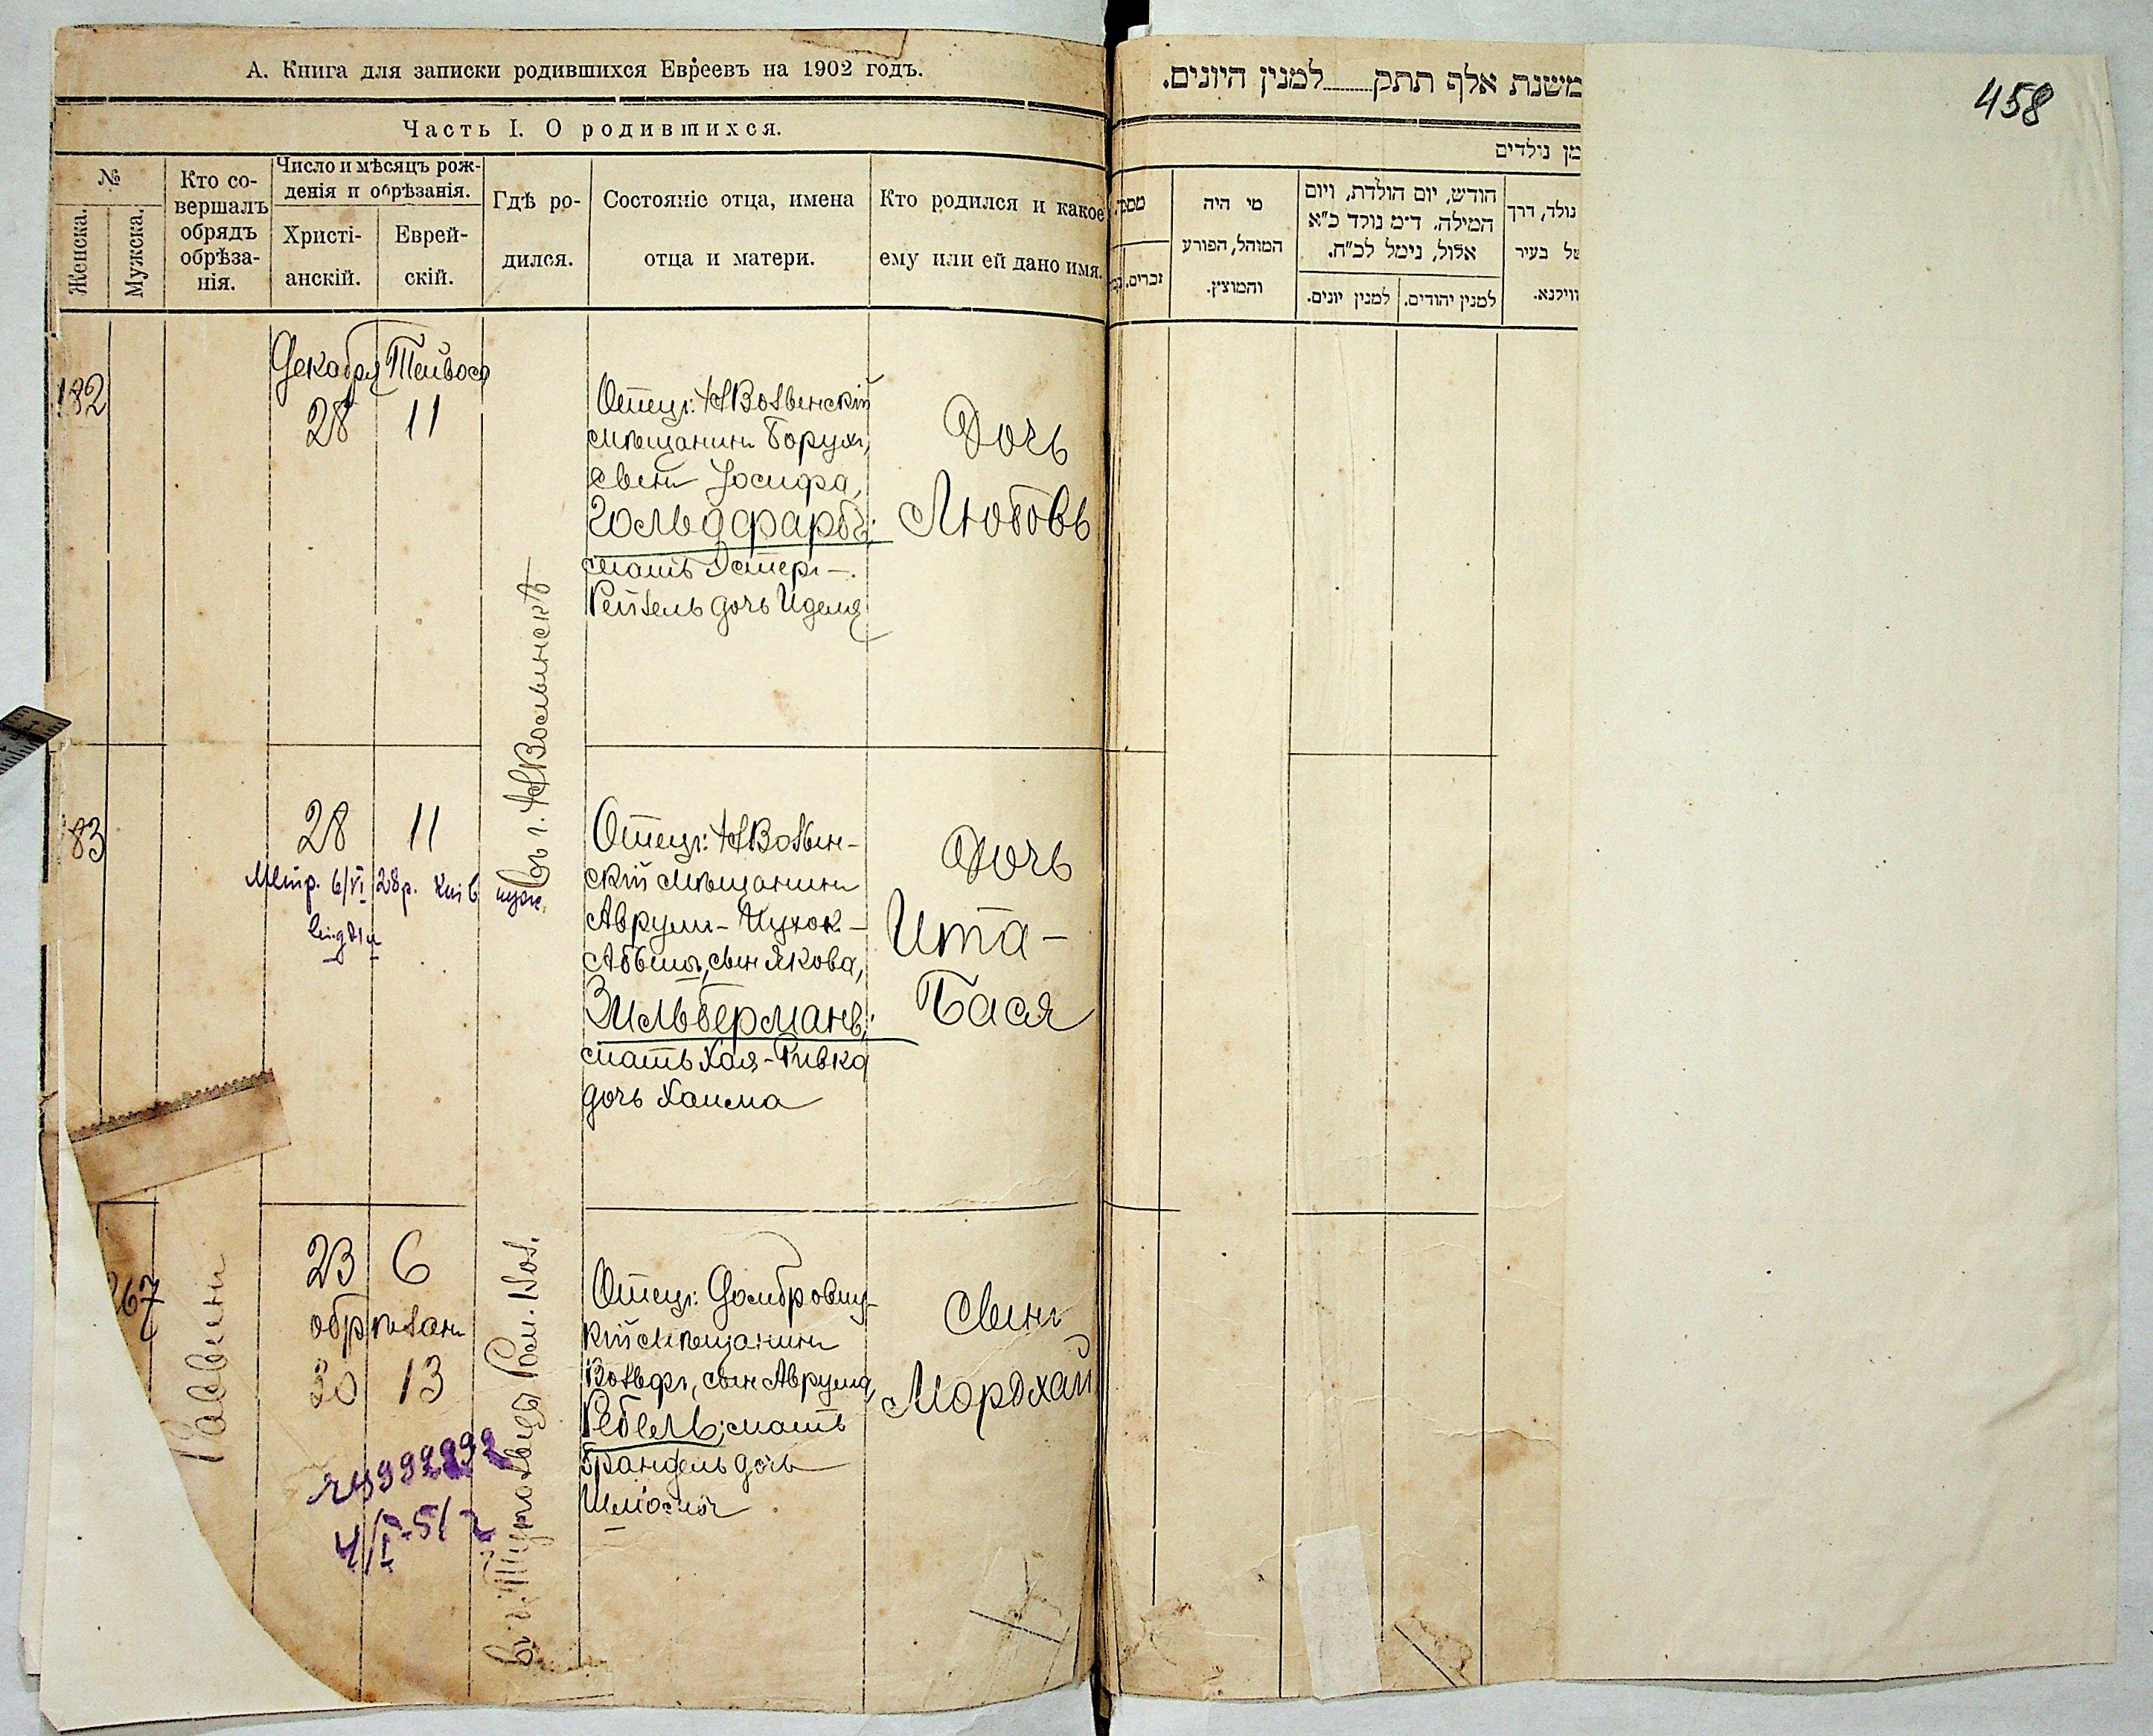 А. Книга для записки родившихся Евреевъ на 1902 годъ.
Часть I. О родившихся.
№
Женска.
Мужска.
Кто со-
вершалъ
обрядъ
обрѣза-
нія.
Число и мѣсяцъ рож-
денія и обрѣзанія.
Христі-
анскій.
Еврей-
скій.
Гдѣ ро-
дился.
Состояніе отца, имена
отца и матери.
Кто родился и какое
ему или ей дано имя.
182
Декабря Тейвоса
28 11
въ г. НВолынскѣ
Отецъ: НВолынскій
мѣщанинъ Борухъ,
сынъ Іосифа,
Гольдфарбъ;
мать Эстеръ-
Рейзель дочь Иделя
Дочь
Любовь
83
28 11
Отецъ: НВолын-
скій мѣщанинъ
Аврумъ-Ицхок-
Абъ сынъ Якова,
Зильберманъ;
мать Хая-Ривка
дочь Хаима
Дочь
Ита-
Бася
267
Раввинъ
23 6
обрѣзанъ
30 13
4/I-51 г
Отецъ: Домбровиц-
кій мѣщанинъ
Вольфъ, сынъ Аврума,
Ребель; мать
Брандель дочь
Шліомы
Сынъ
Мордхай
משנת אלף תתק........למנין היונים.
מן נולדים
זכרים.
מי היה
המוהל, הפורע
והמוצץ.
חודש, יום הולדת, ויום
המילה. ד"מ נולד כ"א
אלול, נימל לכ"ח.
למנין יונים.
למנין יהודים.
נולד, דרך
של בעיר
ווילנא.
458